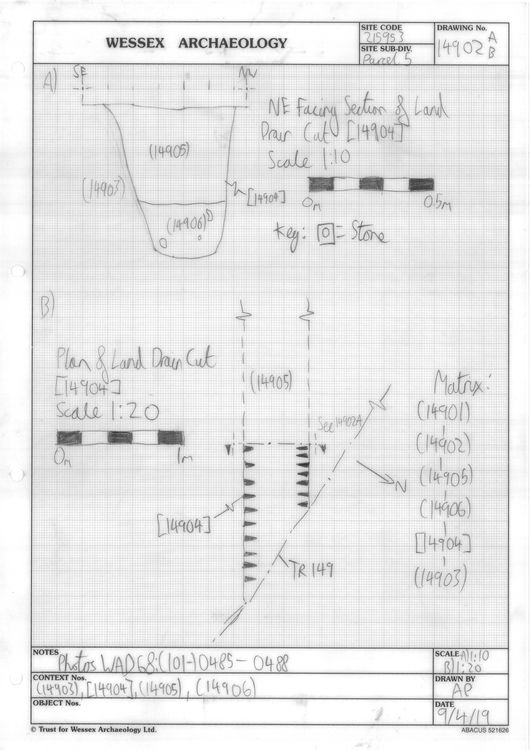 WESSEX ARCHAEOLOGY
SITE CODE
215953
SITE SUB-DIV.
Parcel 5
DRAWING No.
14902 A
B
A)
SE
NW
NE Facing Section of Land
Drain Cut [14904]
Scale 1:10
0m
0.5m
Key: = Stone
(14905)
(14903)
[14904]
(14906)
B)
Plan of Land Drain Cut
[14904]
Scale 1:20
0m
1m
(14905)
See 14902A
N
[14904]
TR 149
Matrix:
(14901)
(14902)
(14905)
(14906)
[14904]
(14903)
NOTES
Photos WAD68:(101-)0485-0488
CONTEXT Nos.
(14903), [14904], (14905), (14906)
OBJECT Nos.
SCALE A)1:10
B)1:20
DRAWN BY
AP
DATE
9/4/19
© Trust for Wessex Archaeology Ltd.
ABACUS 521626